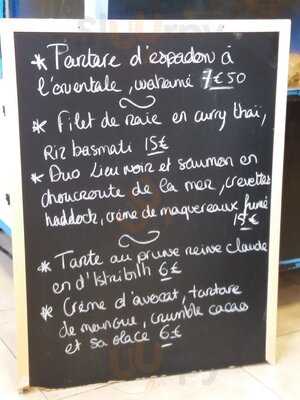 * Tartare d'espadon à
l'orientale, wakamé 7€50
* Filet de raie en curry thaï,
Riz basmati 15€
* Duo Lieu noir et saumon en
choucroute de la mer, crevettes
haddock, crème de maquereaux fumé
15€
* Tarte au prune reine claude
en d'Istribilh 6€
* Crème d'avocat, tartare
de mangue, crumble cacao
et sa glace 6€